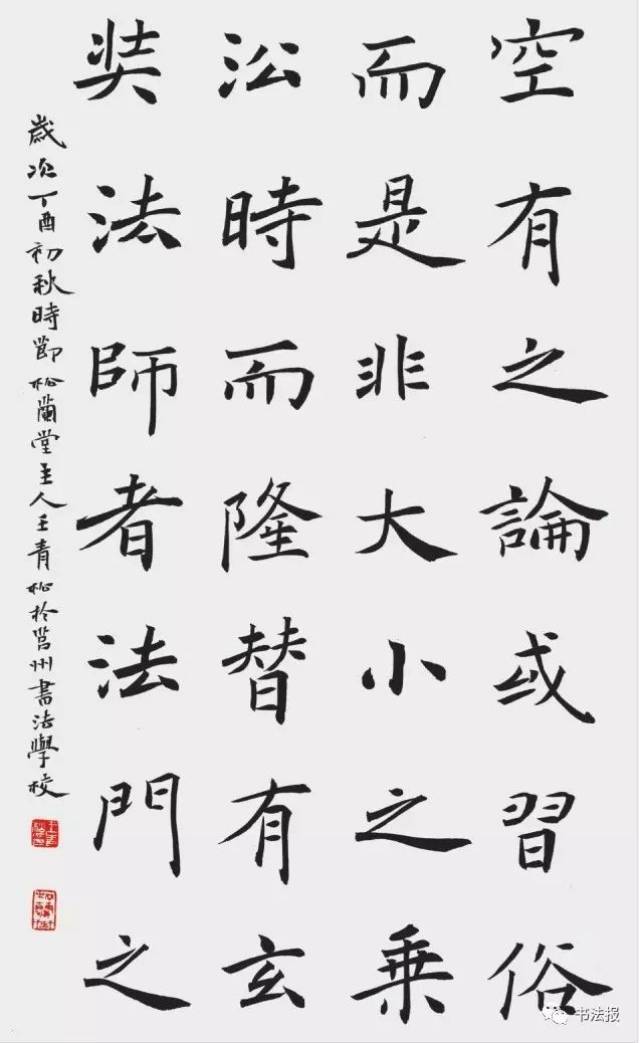 空有之論或習俗
而是非大小之乗
㳂時而隆替有玄
奘法師者法門之
歲次丁酉初秋時節松蘭堂主人王青松於莒州書法學校
书法报